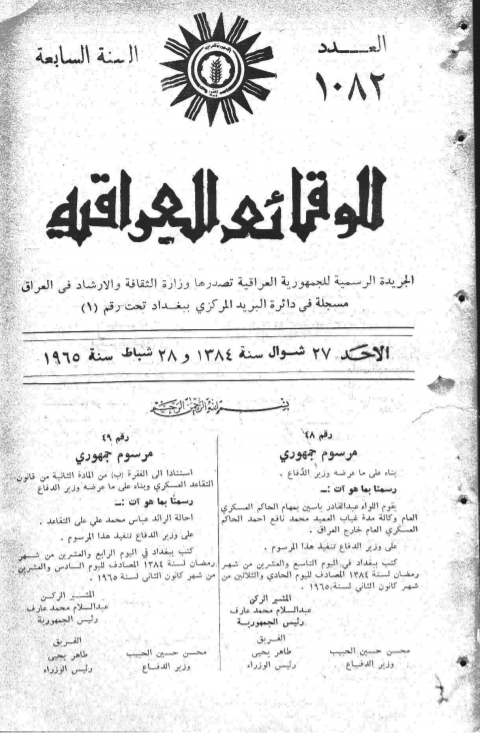 العـــدد
١٠٨٢
السنة السابعة
الوقائع العراقية
الجريدة الرسمية للجمهورية العراقية تصدرها وزارة الثقافة والارشاد في العراق
مسجلة في دائرة البريد المركزي ببغداد تحت رقم (١)
الاحد ٢٧ شوال سنة ١٣٨٤ و ٢٨ شباط سنة ١٩٦٥
بسم الله الرحمن الرحيم
رقم ٤٨
مرسوم جمهوري
بناء على ما عرضه وزير الدفاع .
رسمنا بما هو آت :ــ
يقوم اللواء عبدالقادر ياسين بمهام الحاكم العسكري
العام وكالة مدة غياب العميد محمد نافع احمد الحاكم
العسكري العام خارج العراق .
على وزير الدفاع تنفيذ هذا المرسوم .
كتب ببغداد في اليوم التاسع والعشرين من شهر
رمضان لسنة ١٣٨٤ المصادف لليوم الحادي والثلاثين من
شهر كانون الثاني لسنة ١٩٦٥ .
المشير الركن
عبدالسلام محمد عارف
رئيس الجمهورية
الفريق
محسن حسين الحبيب طاهر يحيى
وزير الدفـاع رئيس الوزراء
رقم ٤٩
مرسوم جمهوري
استنادا الى الفقرة (ب) من المادة الثانية من قانون
التقاعد العسكري وبناء على ما عرضه وزير الدفاع
رسمنا بما هو آت :ــ
احالة الرائد عباس محمد علي على التقاعد .
على وزير الدفاع تنفيذ هذا المرسوم .
كتب ببغداد في اليوم الرابع والعشرين من شهر
رمضان لسنة ١٣٨٤ المصادف لليوم السادس والعشرين
من شهر كانون الثاني لسنة ١٩٦٥ .
المشير الركن
عبدالسلام محمد عارف
رئيس الجمهورية
الفريق
محسن حسين الحبيب طاهر يحيى
وزير الدفـاع رئيس الوزراء